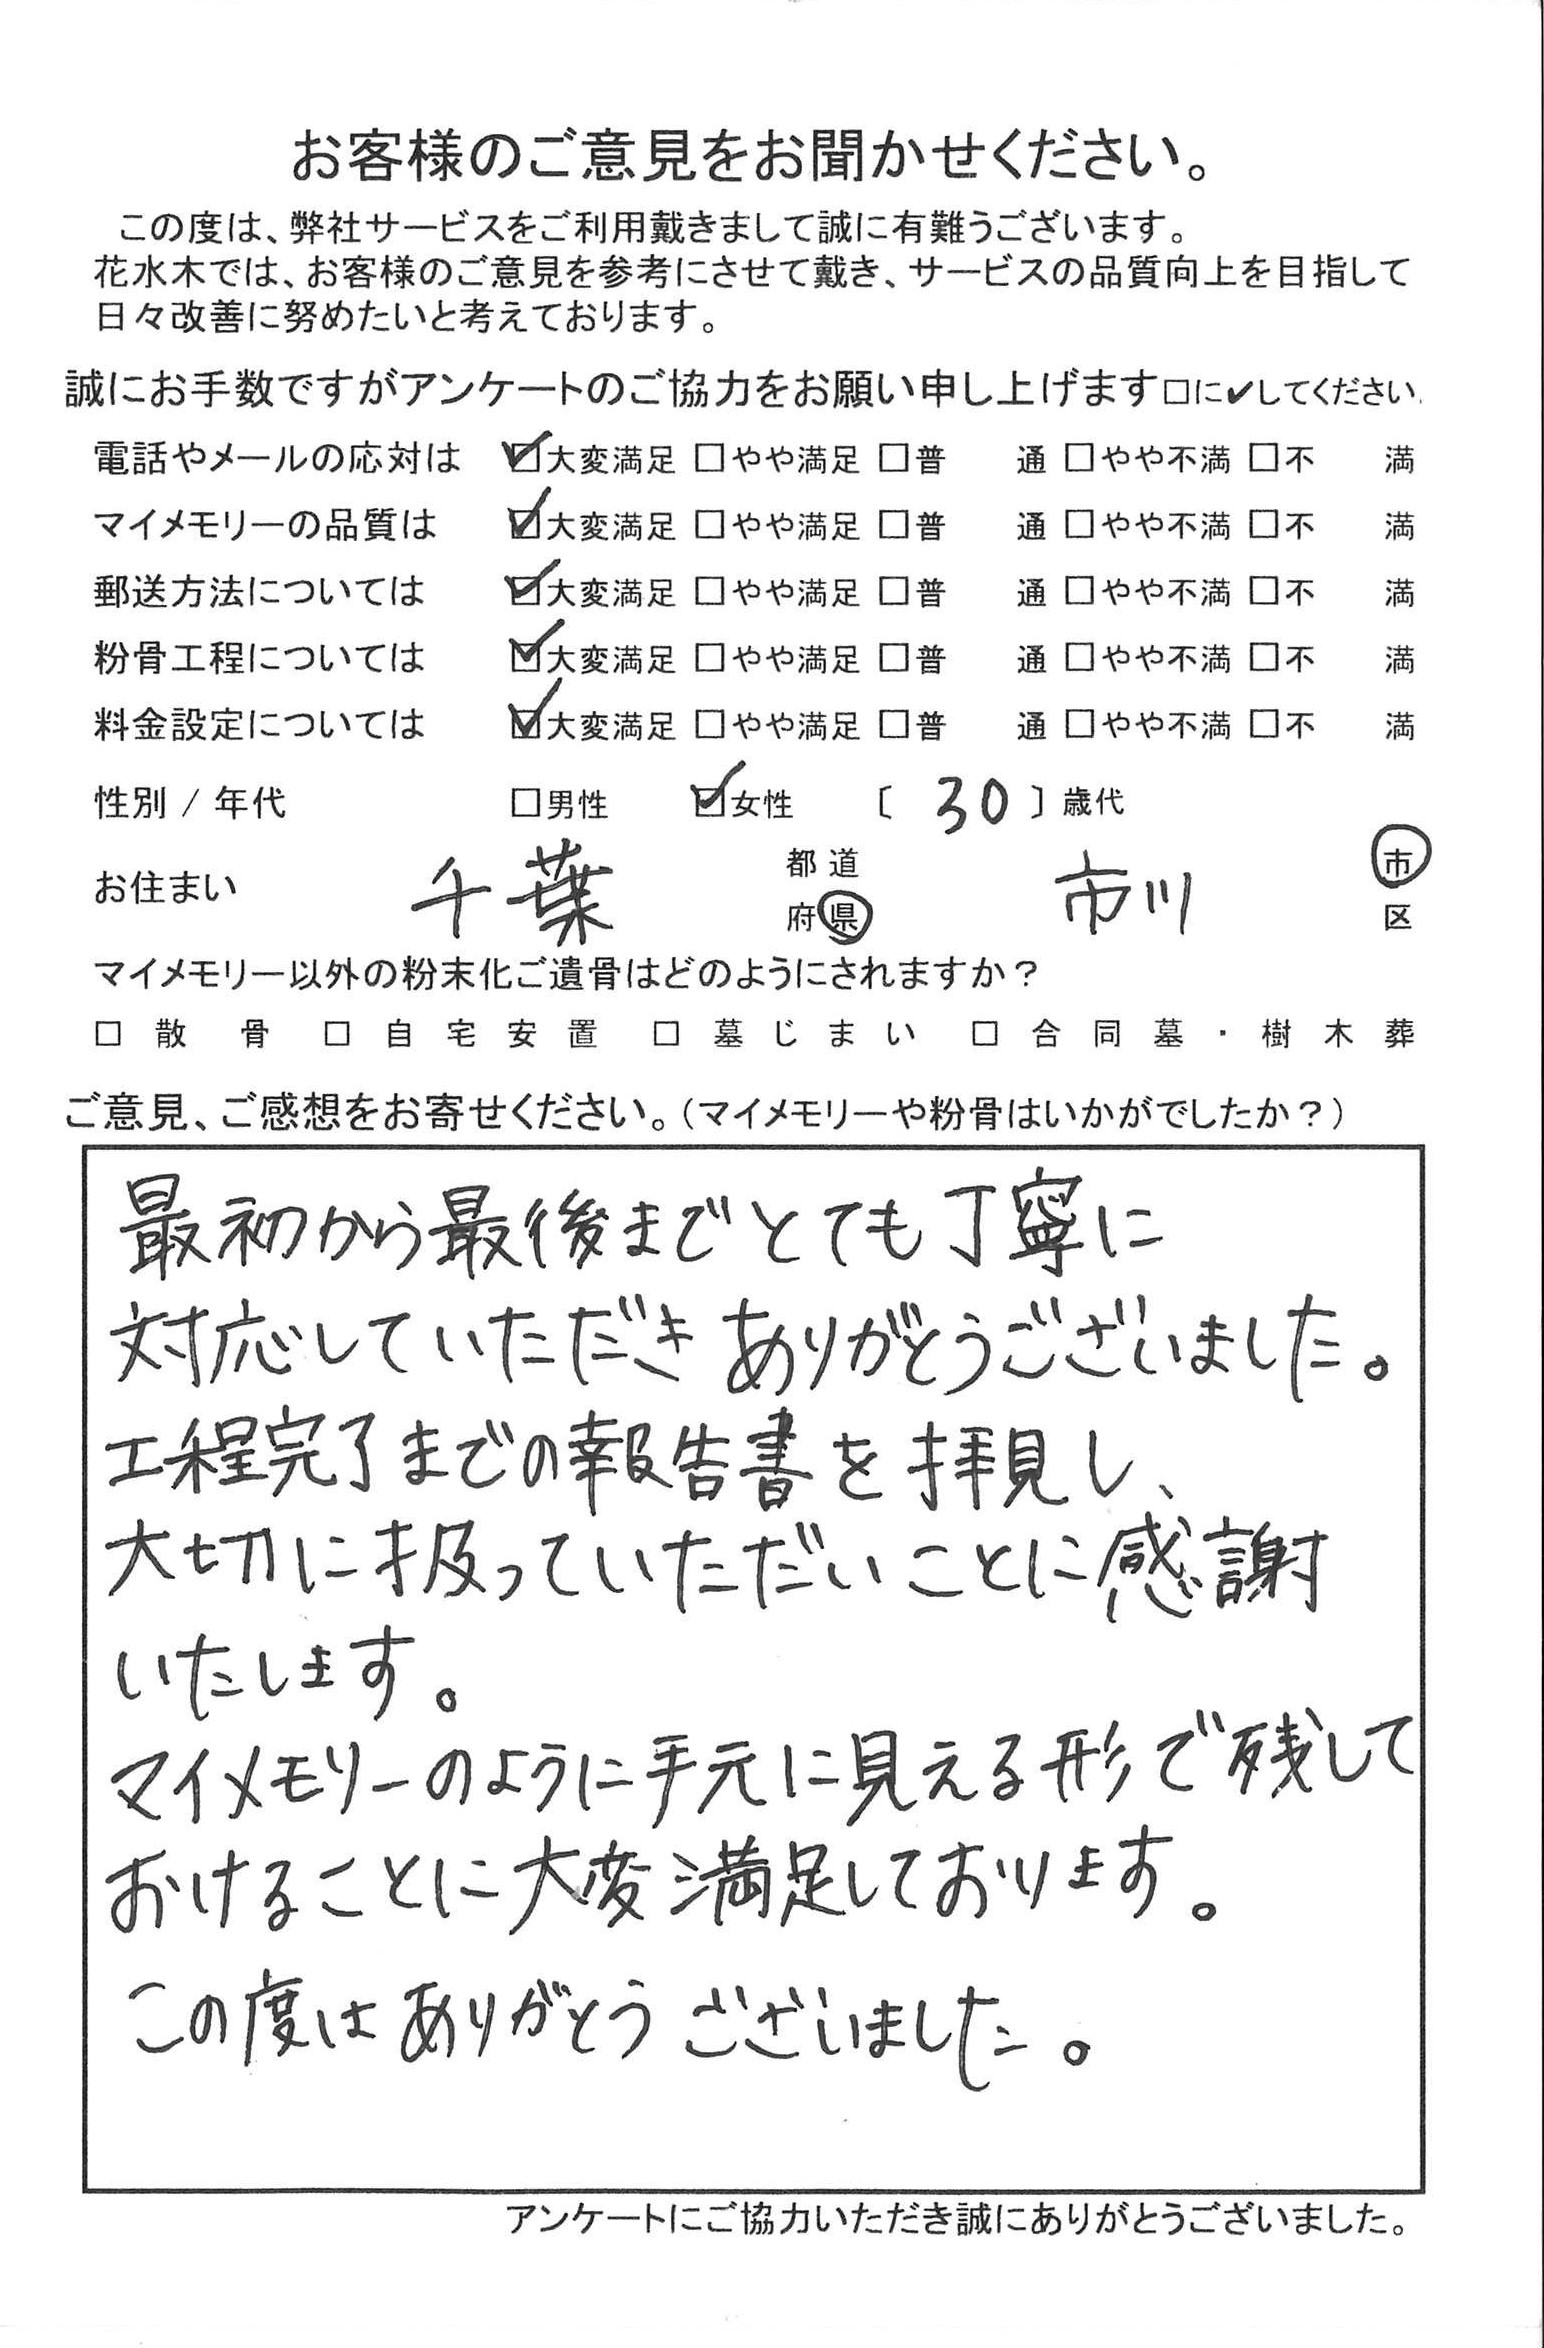 お客様のご意見をお聞かせください。
この度は、弊社サービスをご利用戴きまして誠に有難うございます。
花水木では、お客様のご意見を参考にさせて戴き、サービスの品質向上を目指して
日々改善に努めたいと考えております。
誠にお手数ですがアンケートのご協力をお願い申し上げます□に✔してください.
電話やメールの応対は ☑大変満足 □やや満足 □普 通 □やや不満 □不 満
マイメモリーの品質は ☑大変満足 □やや満足 □普 通 □やや不満 □不 満
郵送方法については ☑大変満足 □やや満足 □普 通 □やや不満 □不 満
粉骨工程については ☑大変満足 □やや満足 □普 通 □やや不満 □不 満
料金設定については ☑大変満足 □やや満足 □普 通 □やや不満 □不 満
性別 / 年代 □男性 ☑女性 〔 30 〕歳代
お住まい 千葉 都道府県 市川 市区
マイメモリー以外の粉末化ご遺骨はどのようにされますか？
□ 散骨 □ 自宅安置 □ 墓じまい □ 合同墓・樹木葬
ご意見、ご感想をお寄せください。（マイメモリーや粉骨はいかがでしたか？）
最初から最後までとても丁寧に
対応していただきありがとうございました。
工程完了までの報告書を拝見し、
大切に扱っていただいことに感謝
いたします。
マイメモリーのように手元に見える形で残して
おけることに大変満足しております。
この度はありがとうございました。
アンケートにご協力いただき誠にありがとうございました。